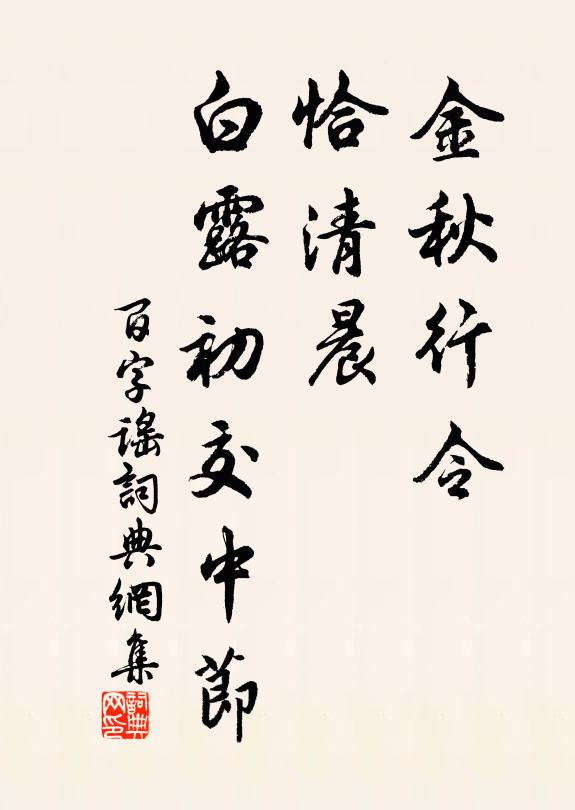 金秋行令
恰清晨
白露初交中節
百字謡詞典網集
詞典
网印